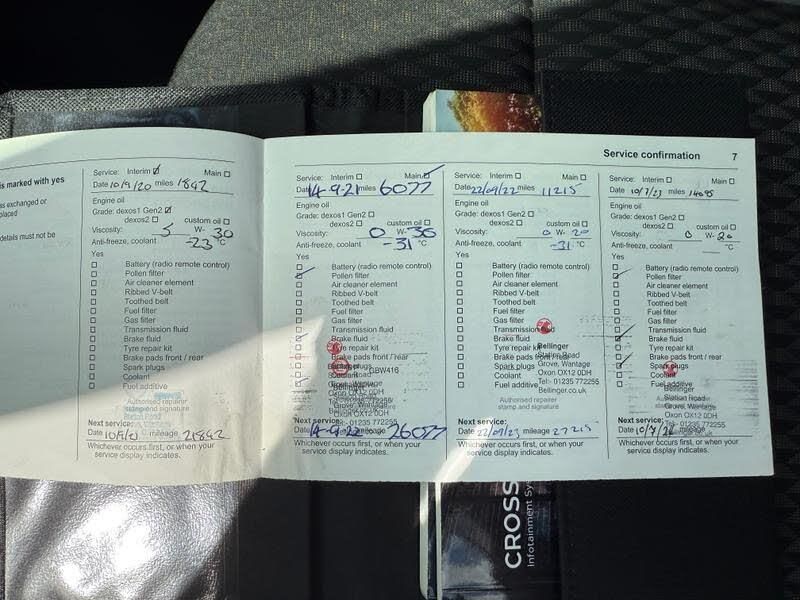 Service confirmation 7
is marked with yes
as exchanged or
placed
details must not be
Service: Interim ☑ Main ☐
Date 10/9/20 miles 1892
Engine oil
Grade: dexos1 Gen2 ☑
dexos2 ☐ custom oil ☐
Viscosity: 5 W- 30
Anti-freeze, coolant -23 °C
Yes
☐ Battery (radio remote control)
☐ Pollen filter
☐ Air cleaner element
☐ Ribbed V-belt
☐ Toothed belt
☐ Fuel filter
☐ Gas filter
☐ Transmission fluid
☐ Brake fluid
☐ Tyre repair kit
☐ Brake pads front / rear
☐ Spark plugs
☐ Coolant
☐ Fuel additive
Authorised repairer
stamp and signature
Next service:
Date 10/9/21 mileage 21892
Whichever occurs first, or when your
service display indicates.
Service: Interim ☐ Main ☑
Date 14-9-21 miles 6077
Engine oil
Grade: dexos1 Gen2 ☐
dexos2 ☐ custom oil ☐
Viscosity: 0 W- 30
Anti-freeze, coolant -31 °C
Yes
☐ Battery (radio remote control)
☑ Pollen filter
☐ Air cleaner element
☐ Ribbed V-belt
☐ Toothed belt
☐ Fuel filter
☐ Gas filter
☐ Transmission fluid
☑ Brake fluid
☐ Tyre repair kit
☐ Brake pads front / rear
GBW416
Bellinger
Grove, Wantage
Oxon OX12 0DH
Next service:
Date 14-9-22 mileage 26077
Whichever occurs first, or when your
service display indicates.
Service: Interim ☐ Main ☐
Date 22/09/22 miles 11215
Engine oil
Grade: dexos1 Gen2 ☐
dexos2 ☐ custom oil ☐
Viscosity: 0 W- 20
Anti-freeze, coolant -31 °C
Yes
☐ Battery (radio remote control)
☐ Pollen filter
☐ Air cleaner element
☐ Ribbed V-belt
☐ Toothed belt
☐ Fuel filter
☐ Gas filter
☐ Transmission fluid
☐ Brake fluid
☐ Tyre repair kit
☐ Brake pads front / rear
☐ Spark plugs
☐ Coolant
☐ Fuel additive
Bellinger
Station Road
Grove, Wantage
Oxon OX12 0DH
Tel:- 01235 772255
Bellinger.co.uk
Authorised repairer
stamp and signature
Next service:
Date 22/09/23 mileage 27215
Whichever occurs first, or when your
service display indicates.
Service: Interim ☐ Main ☐
Date 10/7/23 miles 14095
Engine oil
Grade: dexos1 Gen2 ☐
dexos2 ☐ custom oil ☐
Viscosity: 0 W- 20
Anti-freeze, coolant °C
Yes
☐ Battery (radio remote control)
☑ Pollen filter
☐ Air cleaner element
☐ Ribbed V-belt
☐ Toothed belt
☐ Fuel filter
☐ Gas filter
☐ Transmission fluid
☑ Brake fluid
☐ Tyre repair kit
☐ Brake pads front / rear
☑ Spark plugs
☐ Coolant
☐ Fuel additive
Bellinger
Station Road
Grove, Wantage
Oxon OX12 0DH
Tel:- 01235 772255
Next service:
Date 10/7/24 mileage
Whichever occurs first, or when your
service display indicates.
CROSS
Infotainment Sys